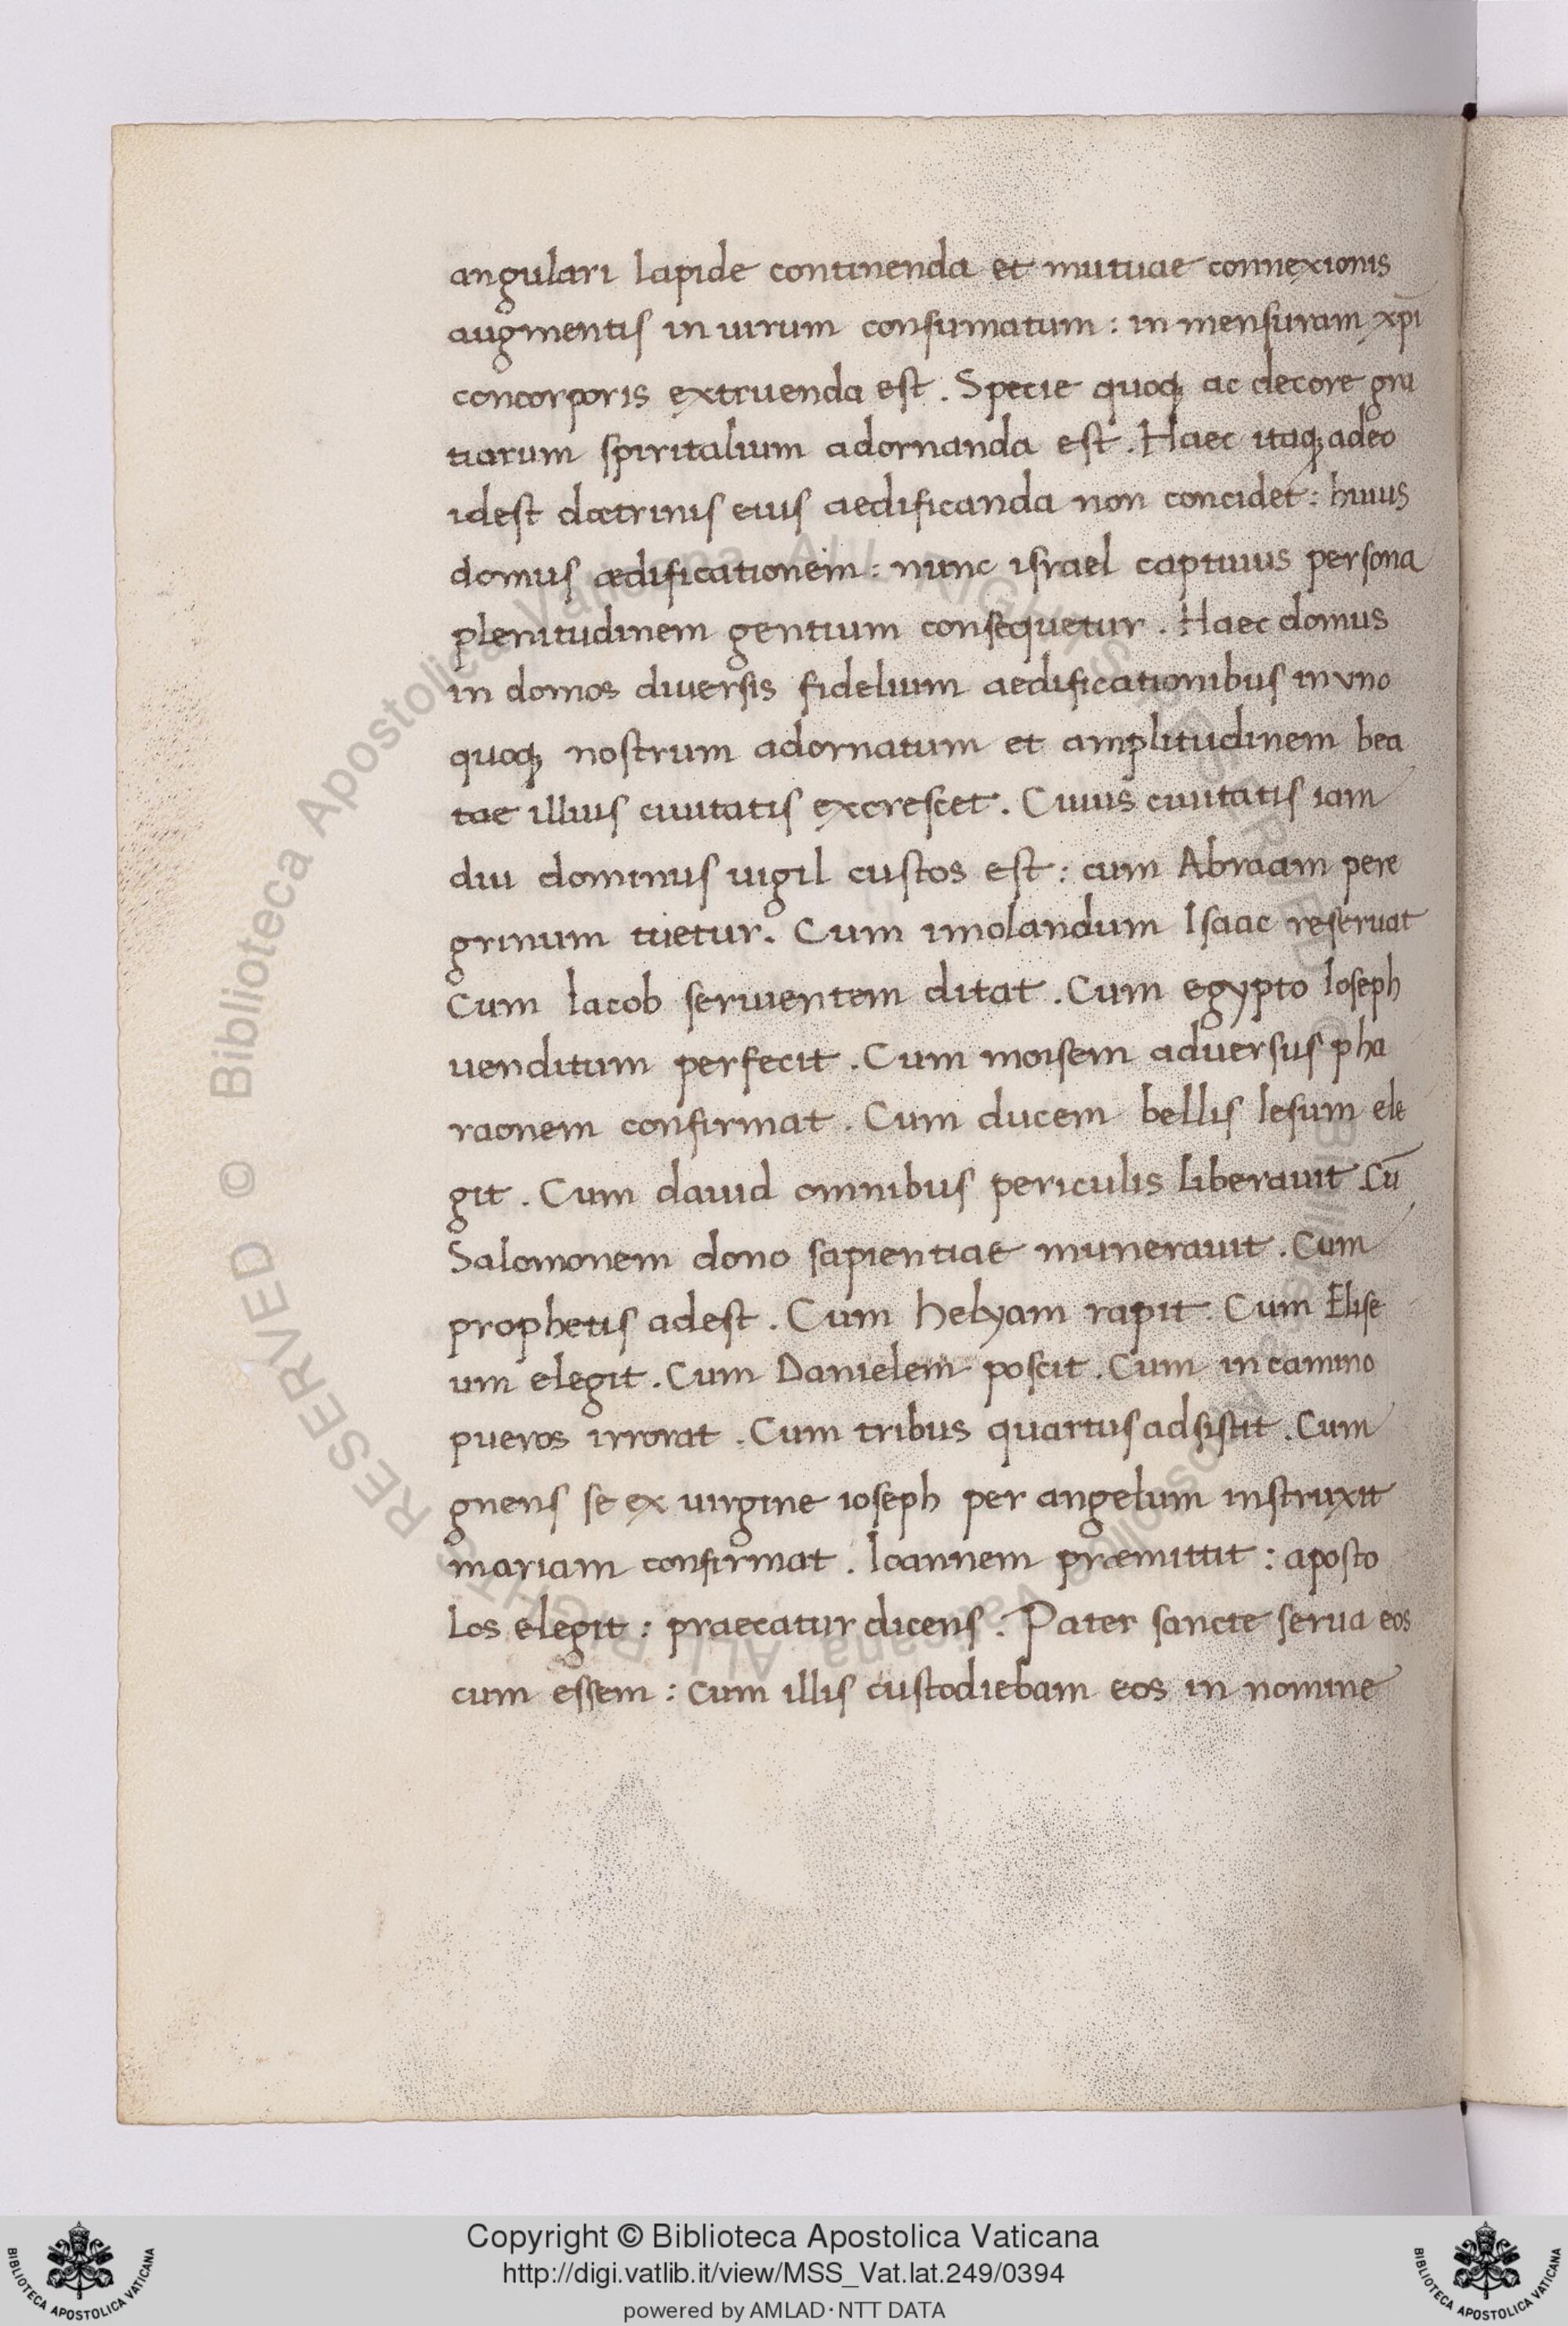 angulari lapide continenda et mutuae connexionis
augmentis in uirum consumatum : in mensuram xp̄i
concorporis extruenda est . Specie quoq; ac decore gra
tiarum spiritalium adornanda est . Haec itaq; adeo
idest doctrinis eius aedificanda non concidet : huius
domus ædificationem : nunc israel captiuus persona
plenitudinem gentium consequetur . Haec domus
in domos diuersis fidelium aedificationibus in vno
quoq; nostrum adornatum et amplitudinem bea
tae illius ciuitatis excrescet . Cuius ciuitatis iam
diu dominus uigil custos est : cum Abraam pere
grinum tuetur . Cum imolandum Isaac reseruat
Cum Iacob seruientem ditat . Cum egypto Ioseph
uenditum perfecit . Cum moisem aduersus pha
raonem confirmat . Cum ducem bellis Iesum ele
git . Cum dauid omnibus periculis liberauit . Cū
Salomonem dono sapientiae munerauit . Cum
prophetis adest . Cum helyam rapit . Cum Elise
um elegit . Cum Danielem poscit . Cum in camino
pueros irrorat . Cum tribus quartus adsistit . Cum
gnens se ex uirgine ioseph per angelum instruxit
mariam confirmat . Ioannem præmittit : aposto
los elegit : praecatur dicens : Pater sancte serua eos
cum essem : cum illis custodiebam eos in nomine
© Biblioteca Apostolica Vaticana ALL RIGHTS RESERVED
© Biblioteca Apostolica Vaticana ALL RIGHTS RESERVED
Copyright © Biblioteca Apostolica Vaticana
http://digi.vatlib.it/view/MSS_Vat.lat.249/0394
powered by AMLAD·NTT DATA
BIBLIOTECA APOSTOLICA VATICANA
BIBLIOTECA APOSTOLICA VATICANA